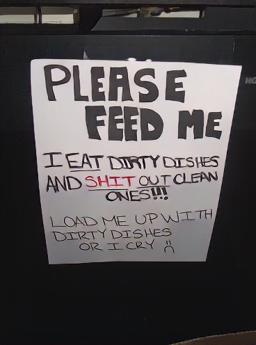 PLEASE
FEED ME
I EAT DIRTY DISHES
AND SHIT OUT CLEAN
ONES!!!
LOAD ME UP WITH
DIRTY DISHES
OR I CRY :(